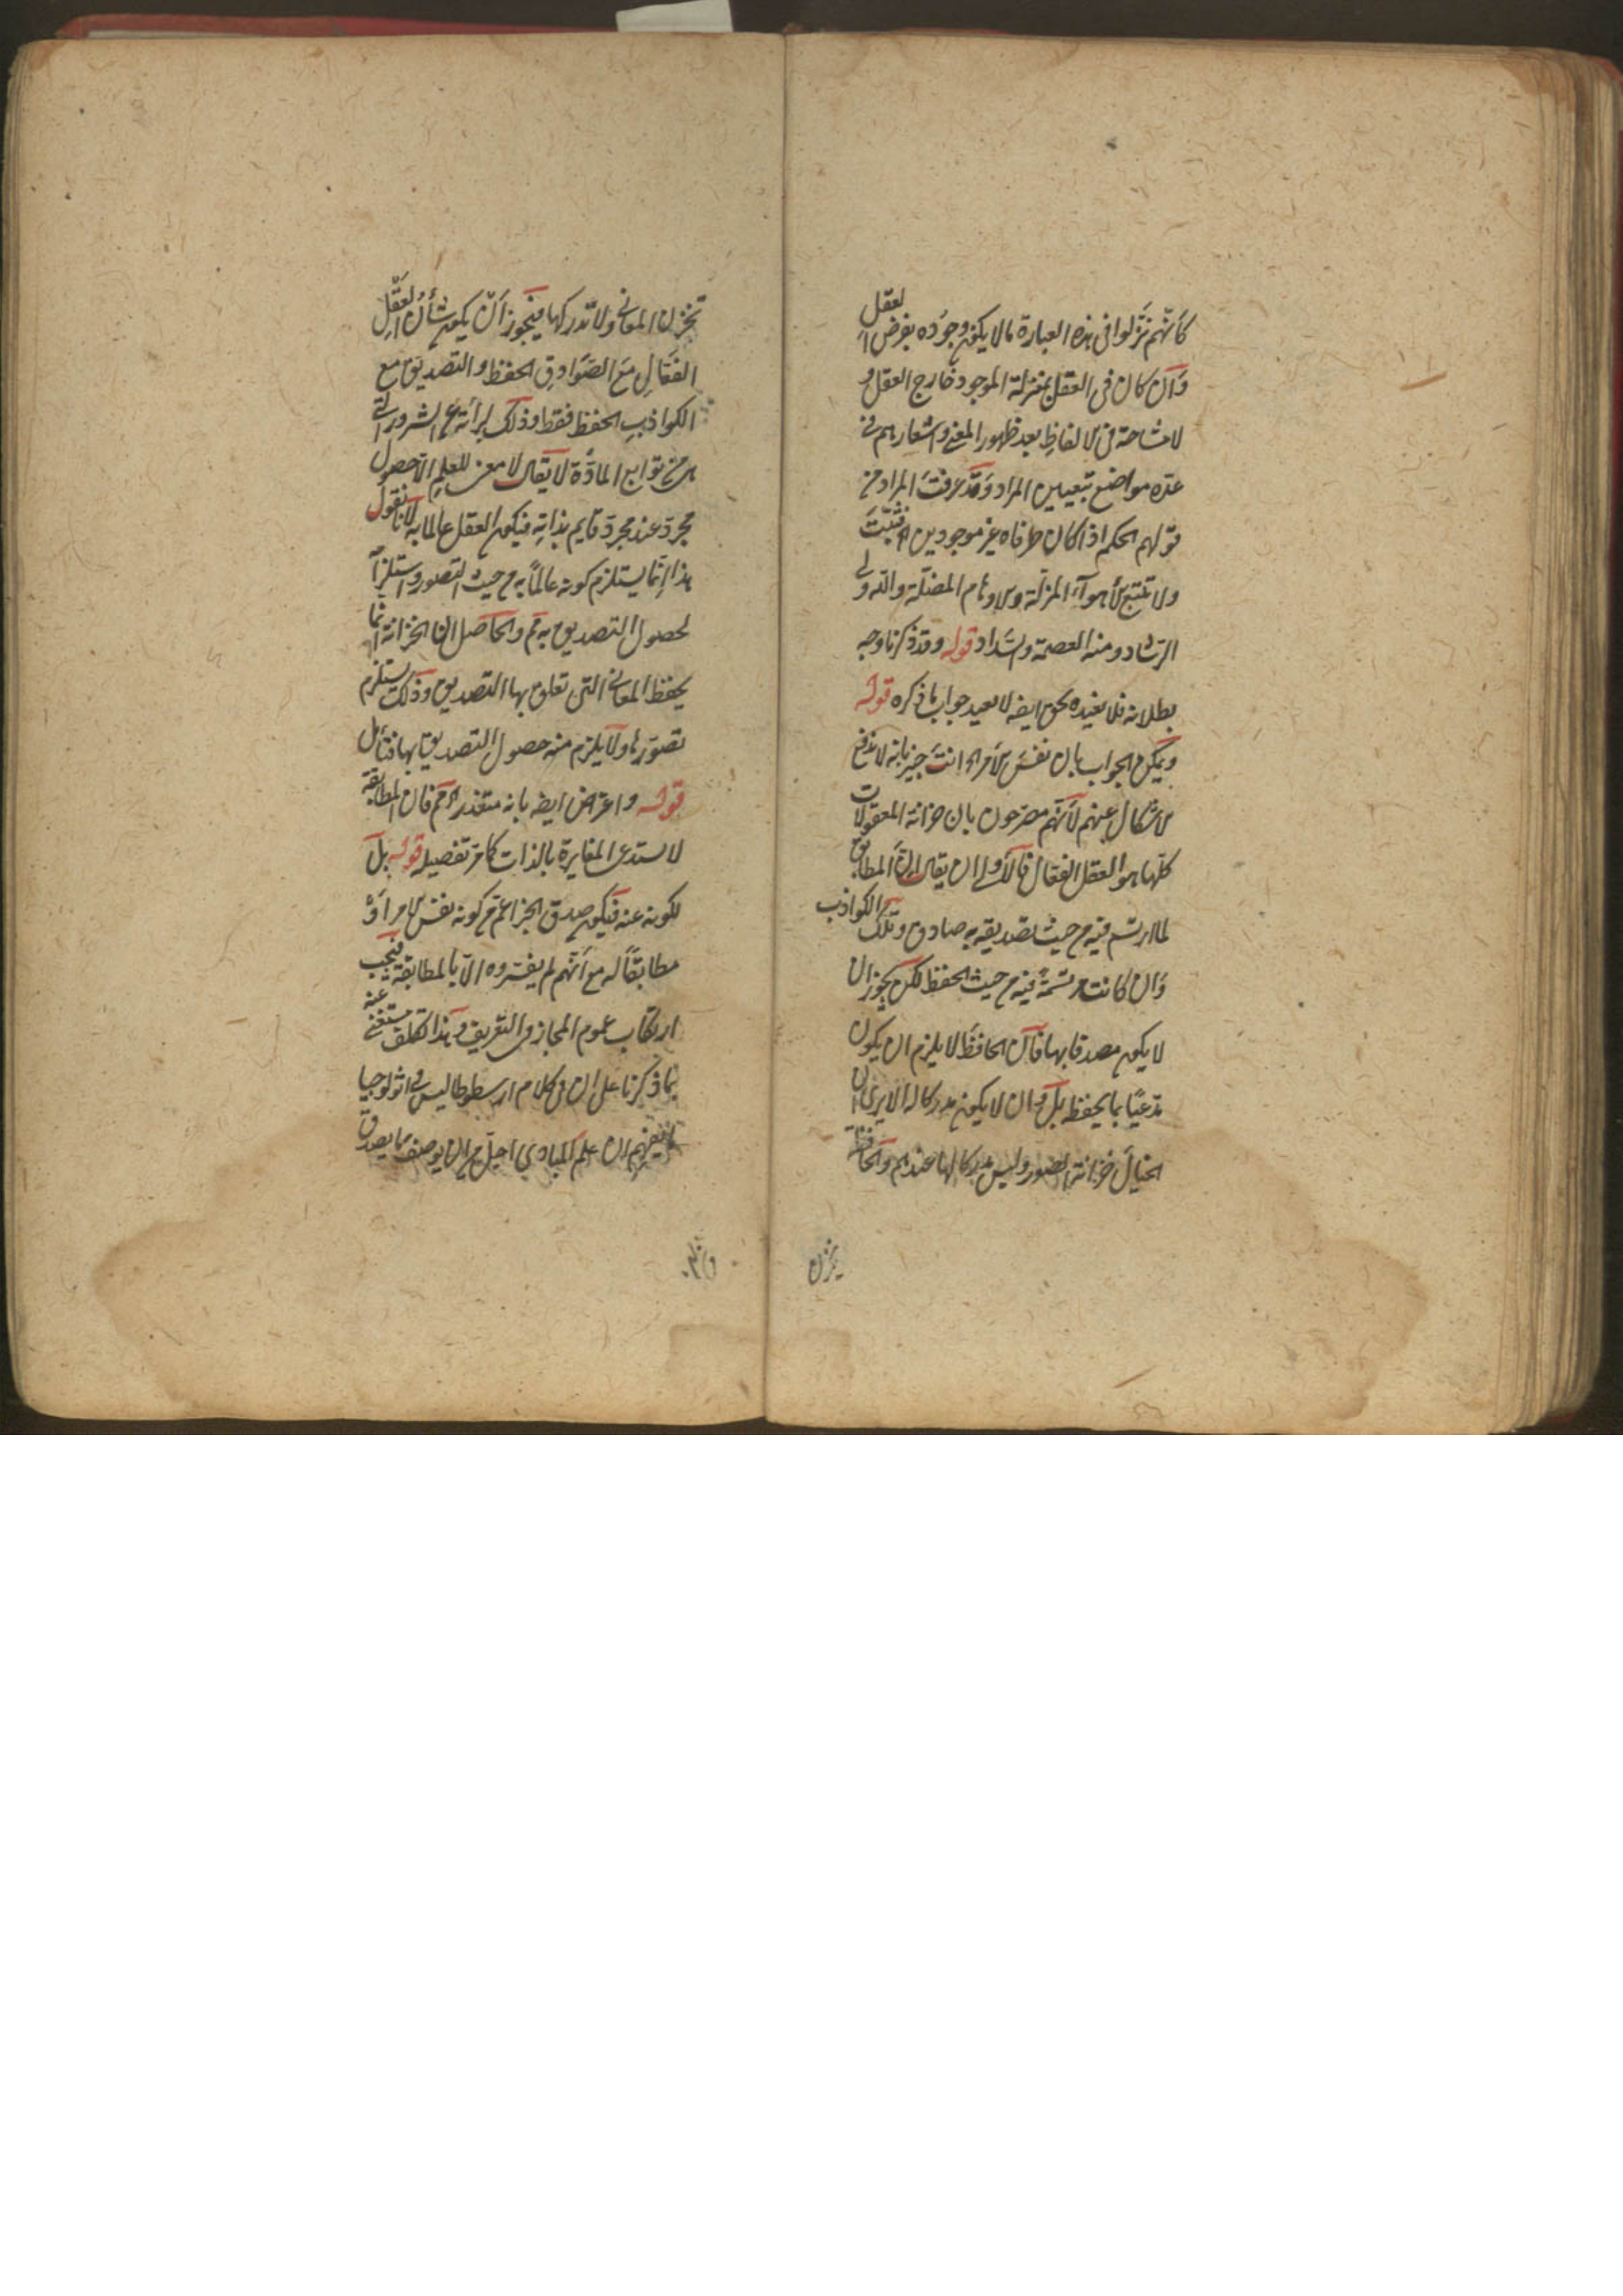 كأنهم نزلوا فى هذه العبارة ما لا يكون وجوده بفرض العقل
وان كان فى العقل بمنزلة الموجود خارج العقل و
لا مشاحة فى الالفاظ بعد ظهور المعنى واشعارهم فى
عدة مواضع بتعيين المراد وقد عرفت المراد من
قولهم الحكم اذا كان طرفاه غير موجودين اه فتثبت
ولا تتبع الأهواء المزلة والاوهام المضلة والله ولى
الرشاد ومنه العصمة والسداد قوله وقد ذكرنا وجه
بطلانه فلا نعيده نحن ايضه لا نعيد جواب ما ذكره قوله
ويمكن الجواب بان نفس الأمر اه انت خبير بانه لا يدفع
الاشكال عنهم لأنهم مصرحون بان خزانة المعقولات
كلها هو العقل الفعال فالأولى ان يقال ان المطابق
لما ارتسم فيه من حيث تصديقه به صادق وتلك الكواذب
وان كانت مرتسمة فيه من حيث الحفظ لكن يجوز ان
لا يكون مصدقا بها فان الحافظ لا يلزم ان يكون
مذعنا بما يحفظ بل وان لا يكون مدركا له الا يرى ان
الخيال خزانة الصور وليس مدركا لها عندهم والحافظة
يخزن
تخزن المعانى ولا تدركها فيجوز ان يكون شأن العقل
الفعال مع الصوادق الحفظ والتصديق مع
الكواذب الحفظ فقط وذلك لبرأته عن الشرور التى
هى من توابع المادة لا يقال لا معنى للعلم الا حصول
مجرد عند مجرد قايم بذاته فيكون العقل عالما به لانا نقول
هذا انما يستلزم كونه عالما به من حيث التصور واستلزامه
لحصول التصديق به مم والحاصل ان الخزانة انما
يحفظ المعانى التى تعلق بها التصديق وذلك يستلزم
تصورها ولا يلزم منه حصول التصديق بها فتأمل
قوله واعترض ايضه بانه متعذر اه مم فان المطابقة
لا يستدعى المغايرة بالذات كما مر تفصيله قوله بل
لكونه عنه فيكون صدق الخبر اعم من كونه نفس الامر او
مطابقا له مع انهم لم يفسروه الا بالمطابقة فيجب
ارتكاب عموم المجاز فى التعريف وهذا تكلف مستغنى عنه
بما ذكرنا على ان فى كلام ارسطوطاليس فى اثولوجيا
ان علم المبادى اجل من ان يوصف بما يصدق